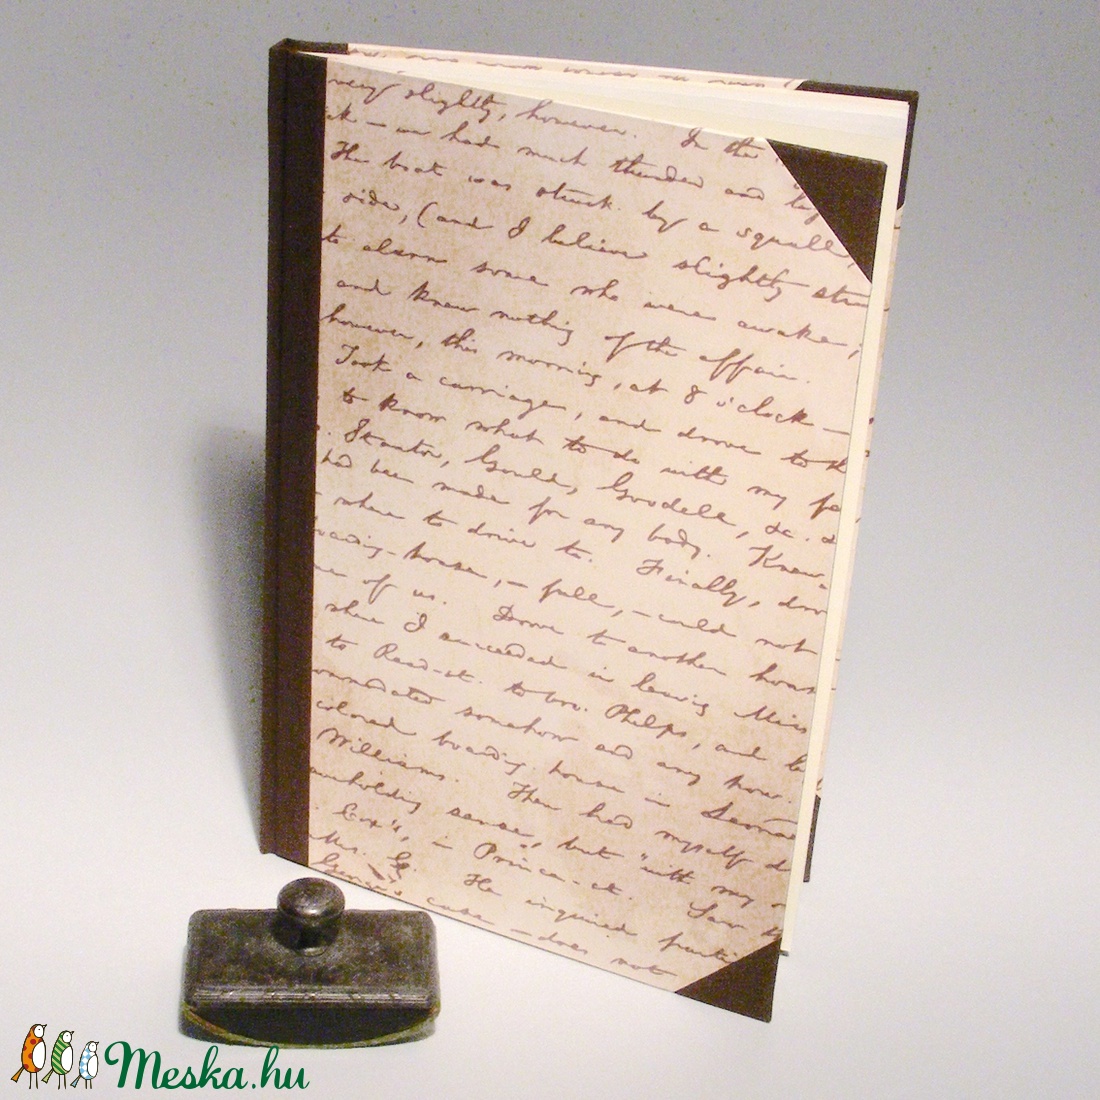 very slightly, however. In the
ck - we had much thunder and lig
The boat was struck by a squall,
side, (and I believe slightly stru
to alarm some who were awake,
and knew nothing of the affair.
however, this morning, at 8 o'clock -
Took a carriage, and drove to th
to know what to do with my
Stanton, Gould, Goodell, &c. &
had been made for any body. Knew
where to drive to. Finally, drov
oarding-house, - full, - could not
of us. Drove to another hous
where I succeeded in leaving Miss
to Read-st. to bro. Phelps, and
ommodated somehow and any how.
colored boarding house in Leonar
Williams. Then had myself d
aveholding sense, but "with my
Cox's, in Prince-st. Saw
Mrs. G. He inquired parti
case - does not
Meska.hu